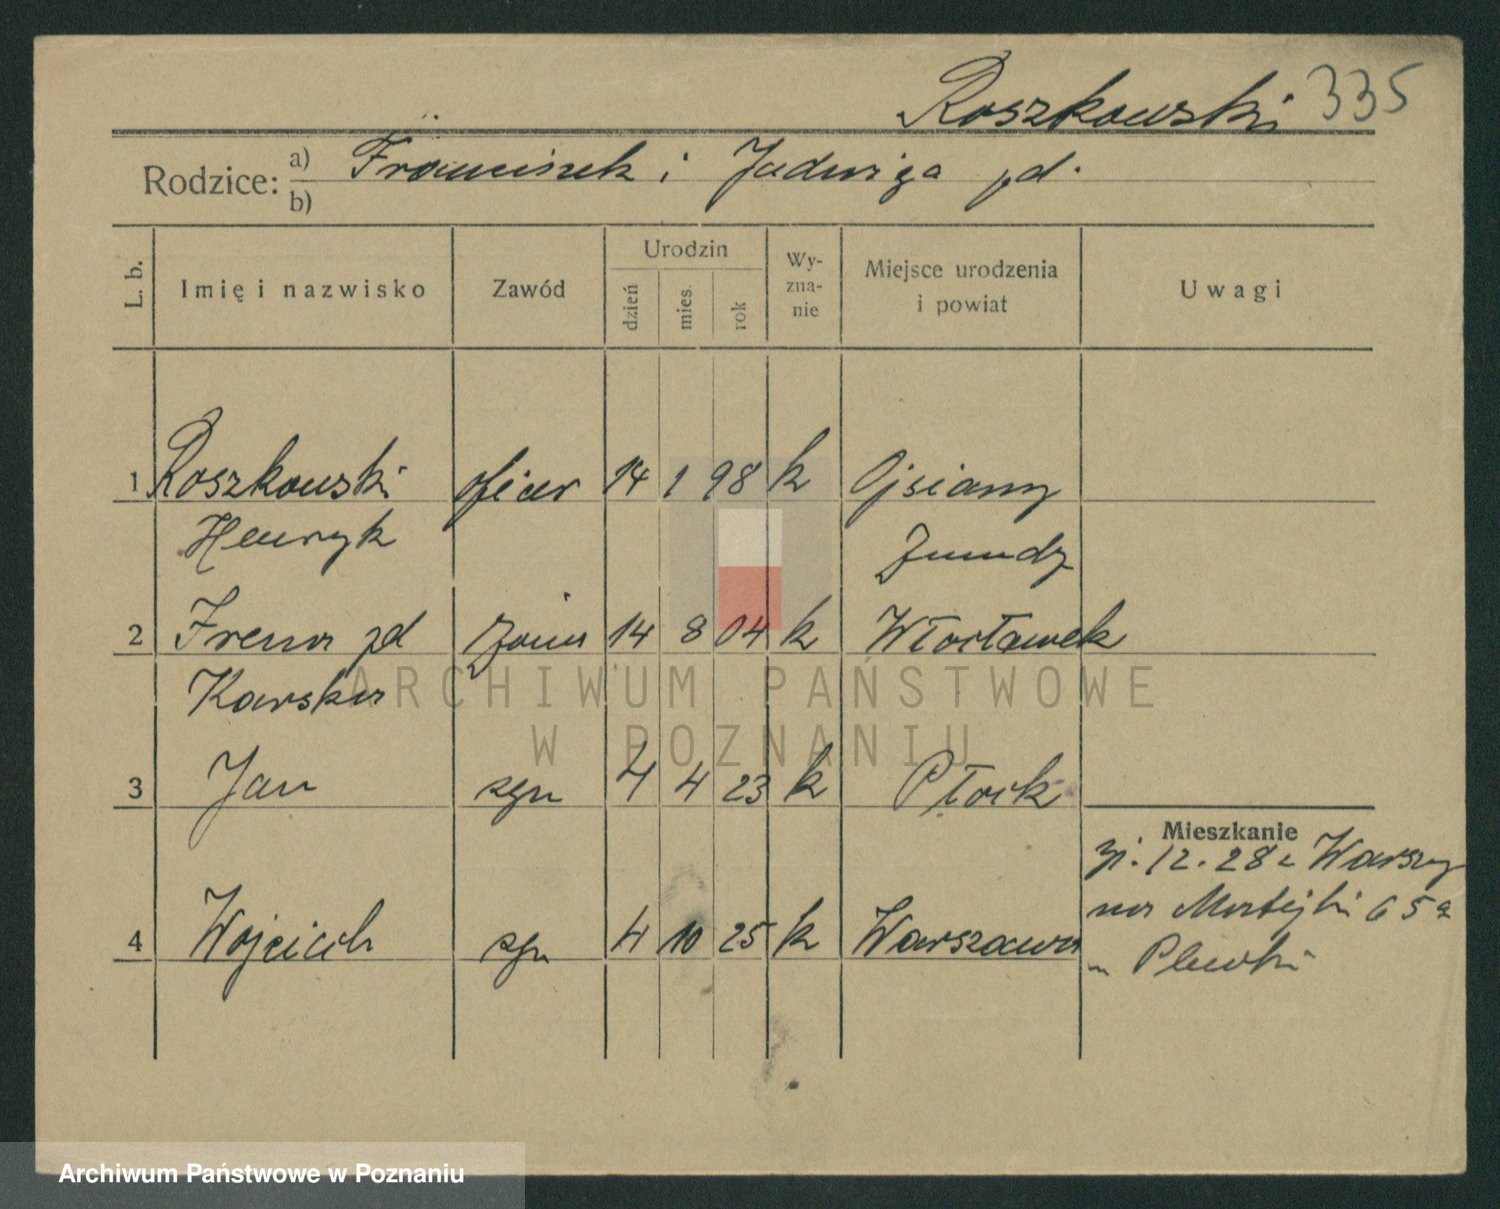 Roszkowski 335
Rodzice: a) Franciszek i Jadwiga zd.
b)
L. b. Imię i nazwisko Zawód Urodzin dzień mies. rok Wy-zna-nie Miejsce urodzenia i powiat Uwagi
1 Roszkowski oficer 14 1 98 k
Henryk
2 Irena zd żona 14 8 04 k Włocławek
Karska
3 Jan syn 4 4 23 k Płock
Mieszkanie
12. 28 z Warszawy
4 Wojciech syn 4 10 25 k Warszawa
65a
ARCHIWUM PAŃSTWOWE
W POZNANIU
Archiwum Państwowe w Poznaniu